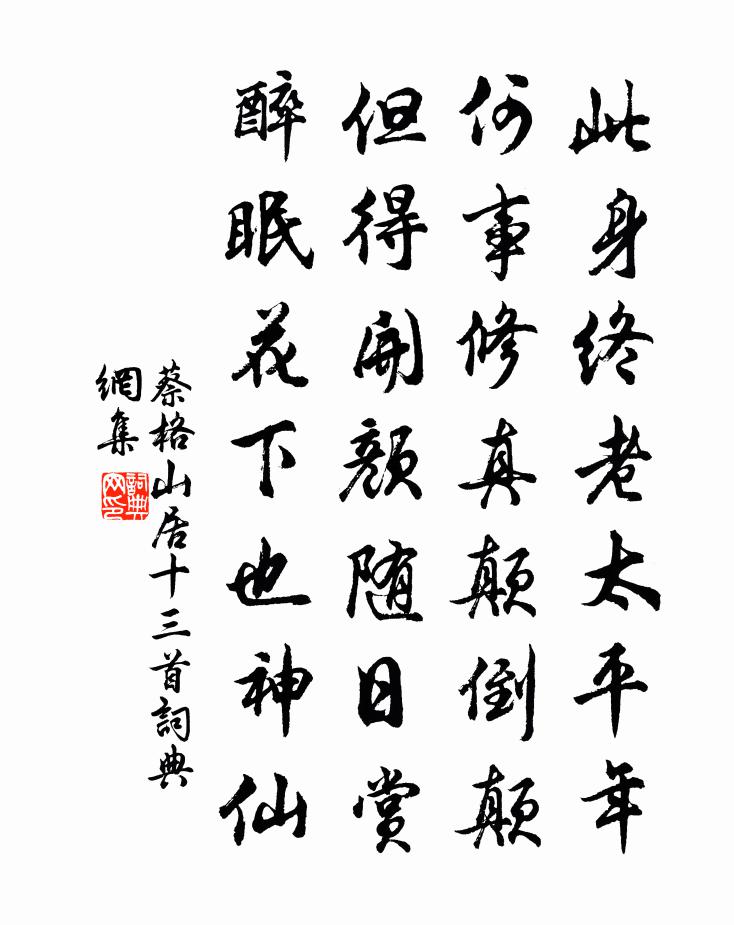 此身终老太平年
何事修真颠倒颠
但得開颜随日赏
醉眠花下也神仙
蔡格山居十三首詞典
網集
詞典
网印